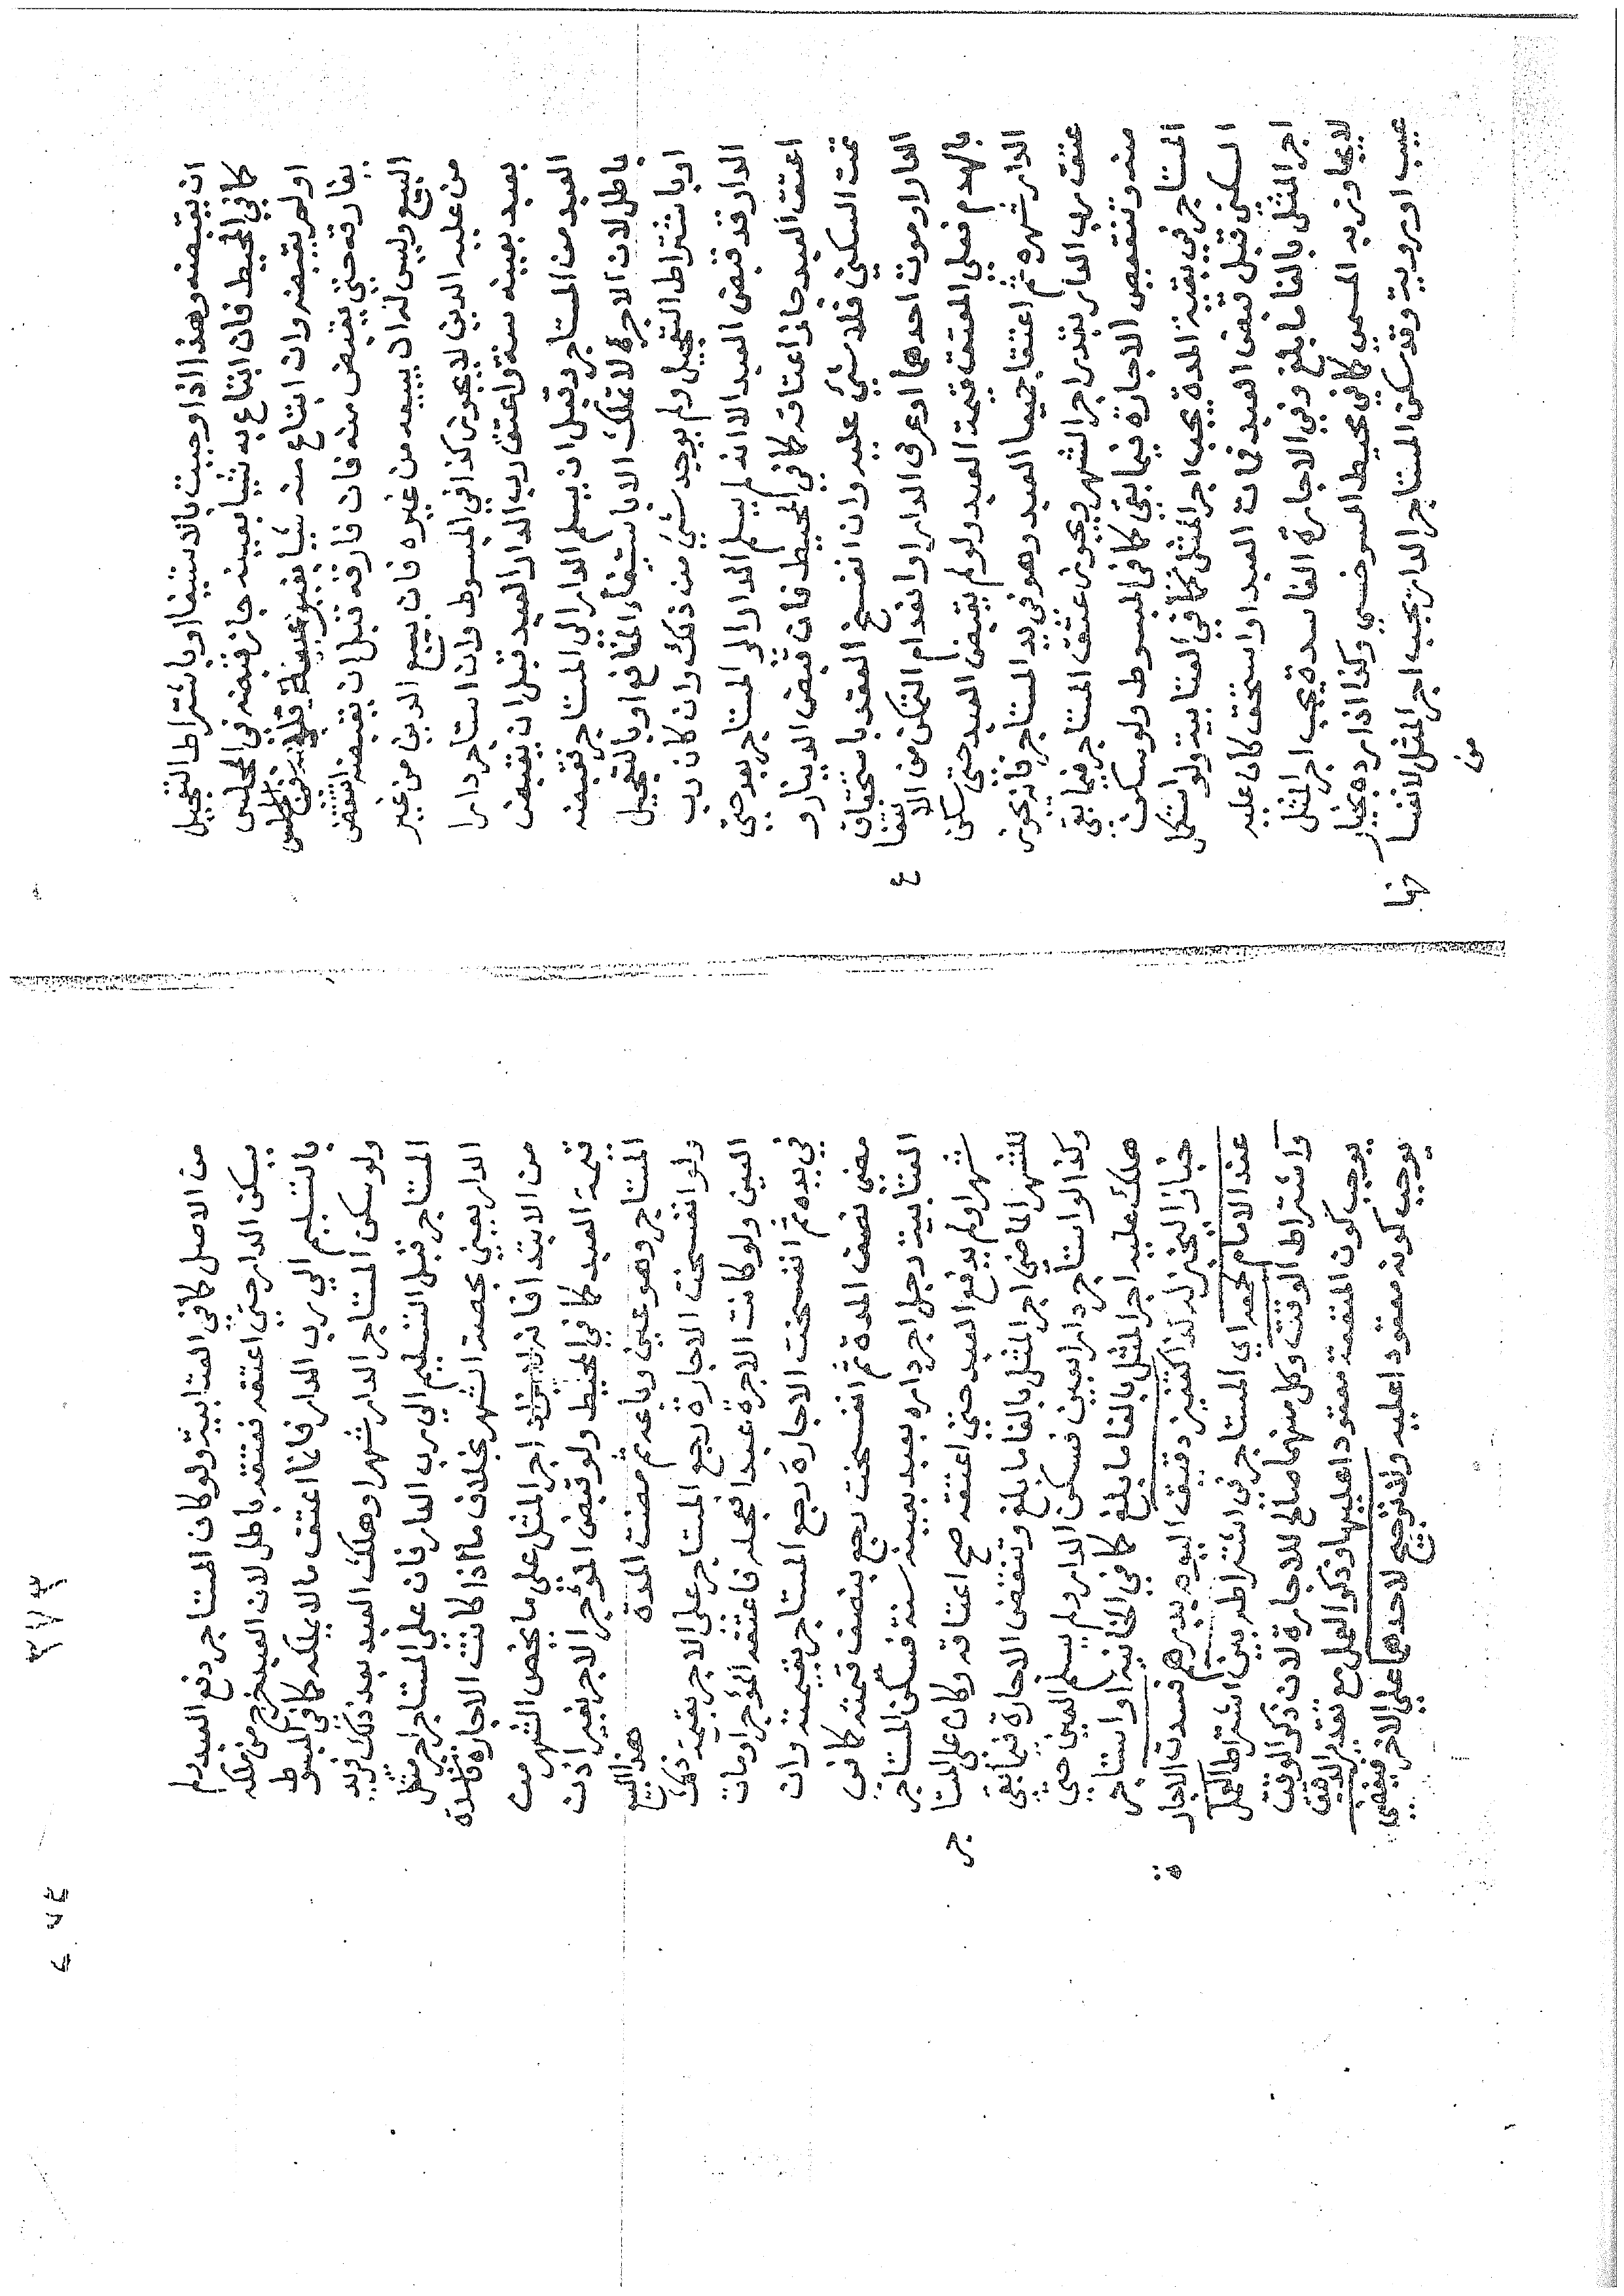 ان يقبضه وهذا اذا وجبت بالاستيفا او باشتراط التعجيل
كما في المحيط فان ابتاع به شيا بعينه جاز قبضه في المجلس
او لم يقبضه وان ابتاع منه شيا بغير عينه فليس له ان
يفارقه حتي يقبض منه فان فارقه قبل ان يقبضه انتقض
البيع وليس له ان يبيعه من غيره فان بيع الدين من غير
من عليه الدين لا يجوز كذا في المبسوط وان استاجر دارا
بعبد بعينه سنة واعتق رب الدار العبد قبل ان يقبض
العبد من المستاجر وقبل ان يسلم الدار الى المستاجر فعتقه
باطل لان الاجرة لا تملك الا باستيفاء المنافع او بالتعجيل
او باشتراط التعجيل ولم يوجد شئ من ذلك وان كان رب
الدار قد قبض العبد الا انه لم يسلم الدار الى المستاجر بعد حتي
اعتق العبد جاز اعتاقه كما في المحيط فان قبض الدينار و
تمت السكني فلا شئ عليه وان انفسخ العقد باستحقاق
الدار او موت احدهما او غرق الدار او انعدام التمكن من الانتفا
ع
بالهدم فعلي المعتق قيمة العبد ولو لم يقبض العبد حتي سكن
الدار شهرا ثم اعتقا جميعا العبد وهو في يد المستاجر فانه يجوز
عتق رب الدار بقدر اجر الشهر ويجوز عتق المستاجر فيما بقي
منه وتنتقض الاجارة فيما بقي كما في المبسوط ولو سكن
المستاجر في بقية المدة يجب اجر المثل كما في العتابية ولو استكمل
السكني قبل قبض العبد فمات العبد او استحق كان عليه
اجر المثل بالغا ما بلغ وفي الاجارة الفاسدة يجب اجر المثل
لا يجاوز به المسمي كما في محيط السرخسي وكذا اذا رده بخيار
عيب او روية وقد سكن المستاجر الدار يجب اجر المثل لانفسا
خها
من
من الاصل كما في العتابية ولو كان المستاجر دفع العبد ولم
يسكن الدار حتي اعتقه فعتقه باطل لان العبد خرج من ملكه
بالتسليم الي رب الدار فانما اعتق مالا يملكه كما في المبسوط
ولو سكن المستاجر الدار شهرا وهلك العبد بعد ذلك في يد
المستاجر قبل التسليم الى رب الدار فان علي المستاجر اجر مثل
الدار يعني بحصة الشهر بخلاف ما اذا كانت الاجارة فاسدة
من الابتدا فانه لا يزاد اجر المثل علي ما يخص الشهر من
قيمة العبد كما في المحيط ولو قبض المؤجر الاجر بغير اذن
المستاجر وهو عين وباعه ثم مضت المدة هذ البيع
ولو انفسخت الاجارة رجع المستاجر على الاجر بقيمة ذلك
العين ولو كانت الاجرة عبدا فعجله فاعتقه المؤجر او مات
في يده ثم انفسخت الاجارة رجع المستاجر بقيمته وان
مضي نصف المدة ثم انفسخت رجع بنصف قيمته كما في
العتابية رجل اجر داره بعبد بعينه سنة فسكن المستاجر
شهرا ولم يدفع العبد حتي اعتقه صح اعتاقه وكان على المستا
جر
للشهر الماضي اجر المثل بالغا ما بلغ وتنتقض الاجارة فيما بقي
وكذا لو استاجر دارا بعين فسكن الدار ولم يسلم العين حتي
هلك عليه اجر المثل بالغا ما بلغ كما في الخانية او استاجر
خبازا ليخبز له كذا كقفيز دقيق اليوم بدرهم فسدت الاجار
ة
عند الامام لجمعه اي المستاجر في اشتراطه بين اشتراط العمل
واشتراط الوقت وكل منهما صالح للاجارة لان ذكر الوقت
يوجب كون المنفعة معقودا عليها وذكر العمل مع تقدير الدقيق
يوجب كونه معقودا عليه ولا ترجيح لاحدهما علي الاخر فيفضي